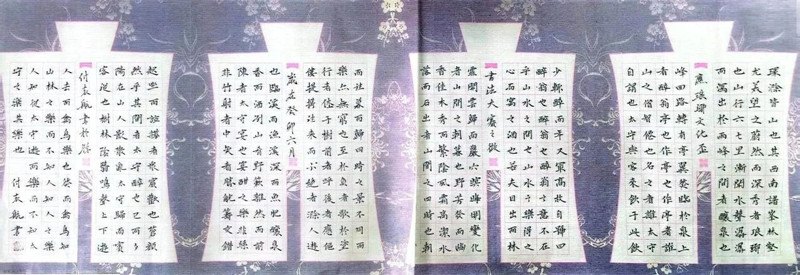 環滁皆山也其西南諸峯林壑
尤美望之蔚然而深秀者瑯琊
也山行六七里漸聞水聲潺潺
而瀉出於兩峰之間者釀泉也
碑文化盃
峰回路轉有亭翼然臨於泉上
者醉翁亭也作亭者誰
山之僧智僊也名之者誰太守
自謂也太守與客來飲于此飲
少輒醉而年又最高故自號曰
醉翁也醉翁之意不在酒在
乎山水之間也山水之樂得之
心而寓之酒也若夫日出而林
書法大賽之徵
霏開雲歸而巖穴暝晦明變化
者山間之朝暮也野芳發而幽
香佳木秀而繁陰風霜高潔水
落而石出者山間之四時也朝
而往暮而歸四時之景不同而
樂亦無窮也至於負者歌於塗
行者休于樹前者呼後者應傴
僂提攜往來而不絕者滁人遊
歲在癸卯六月
也臨溪而漁溪深而魚肥釀泉
香而酒洌山肴野蔌雜然而前
陳者太守宴也宴酣之樂非絲
非竹射者中奕者勝觥籌交錯
起坐而諠譁者眾賓歡也蒼顏
然乎其間者太守醉也已而夕
陽在山人影散亂太守歸而賓
客從也樹林陰翳鳴聲上下遊
付友航書於
人去而禽鳥樂也然而禽鳥知
山林之樂而不知人之樂
人知從太守遊而樂而不知太
守之樂其樂也 付友航書